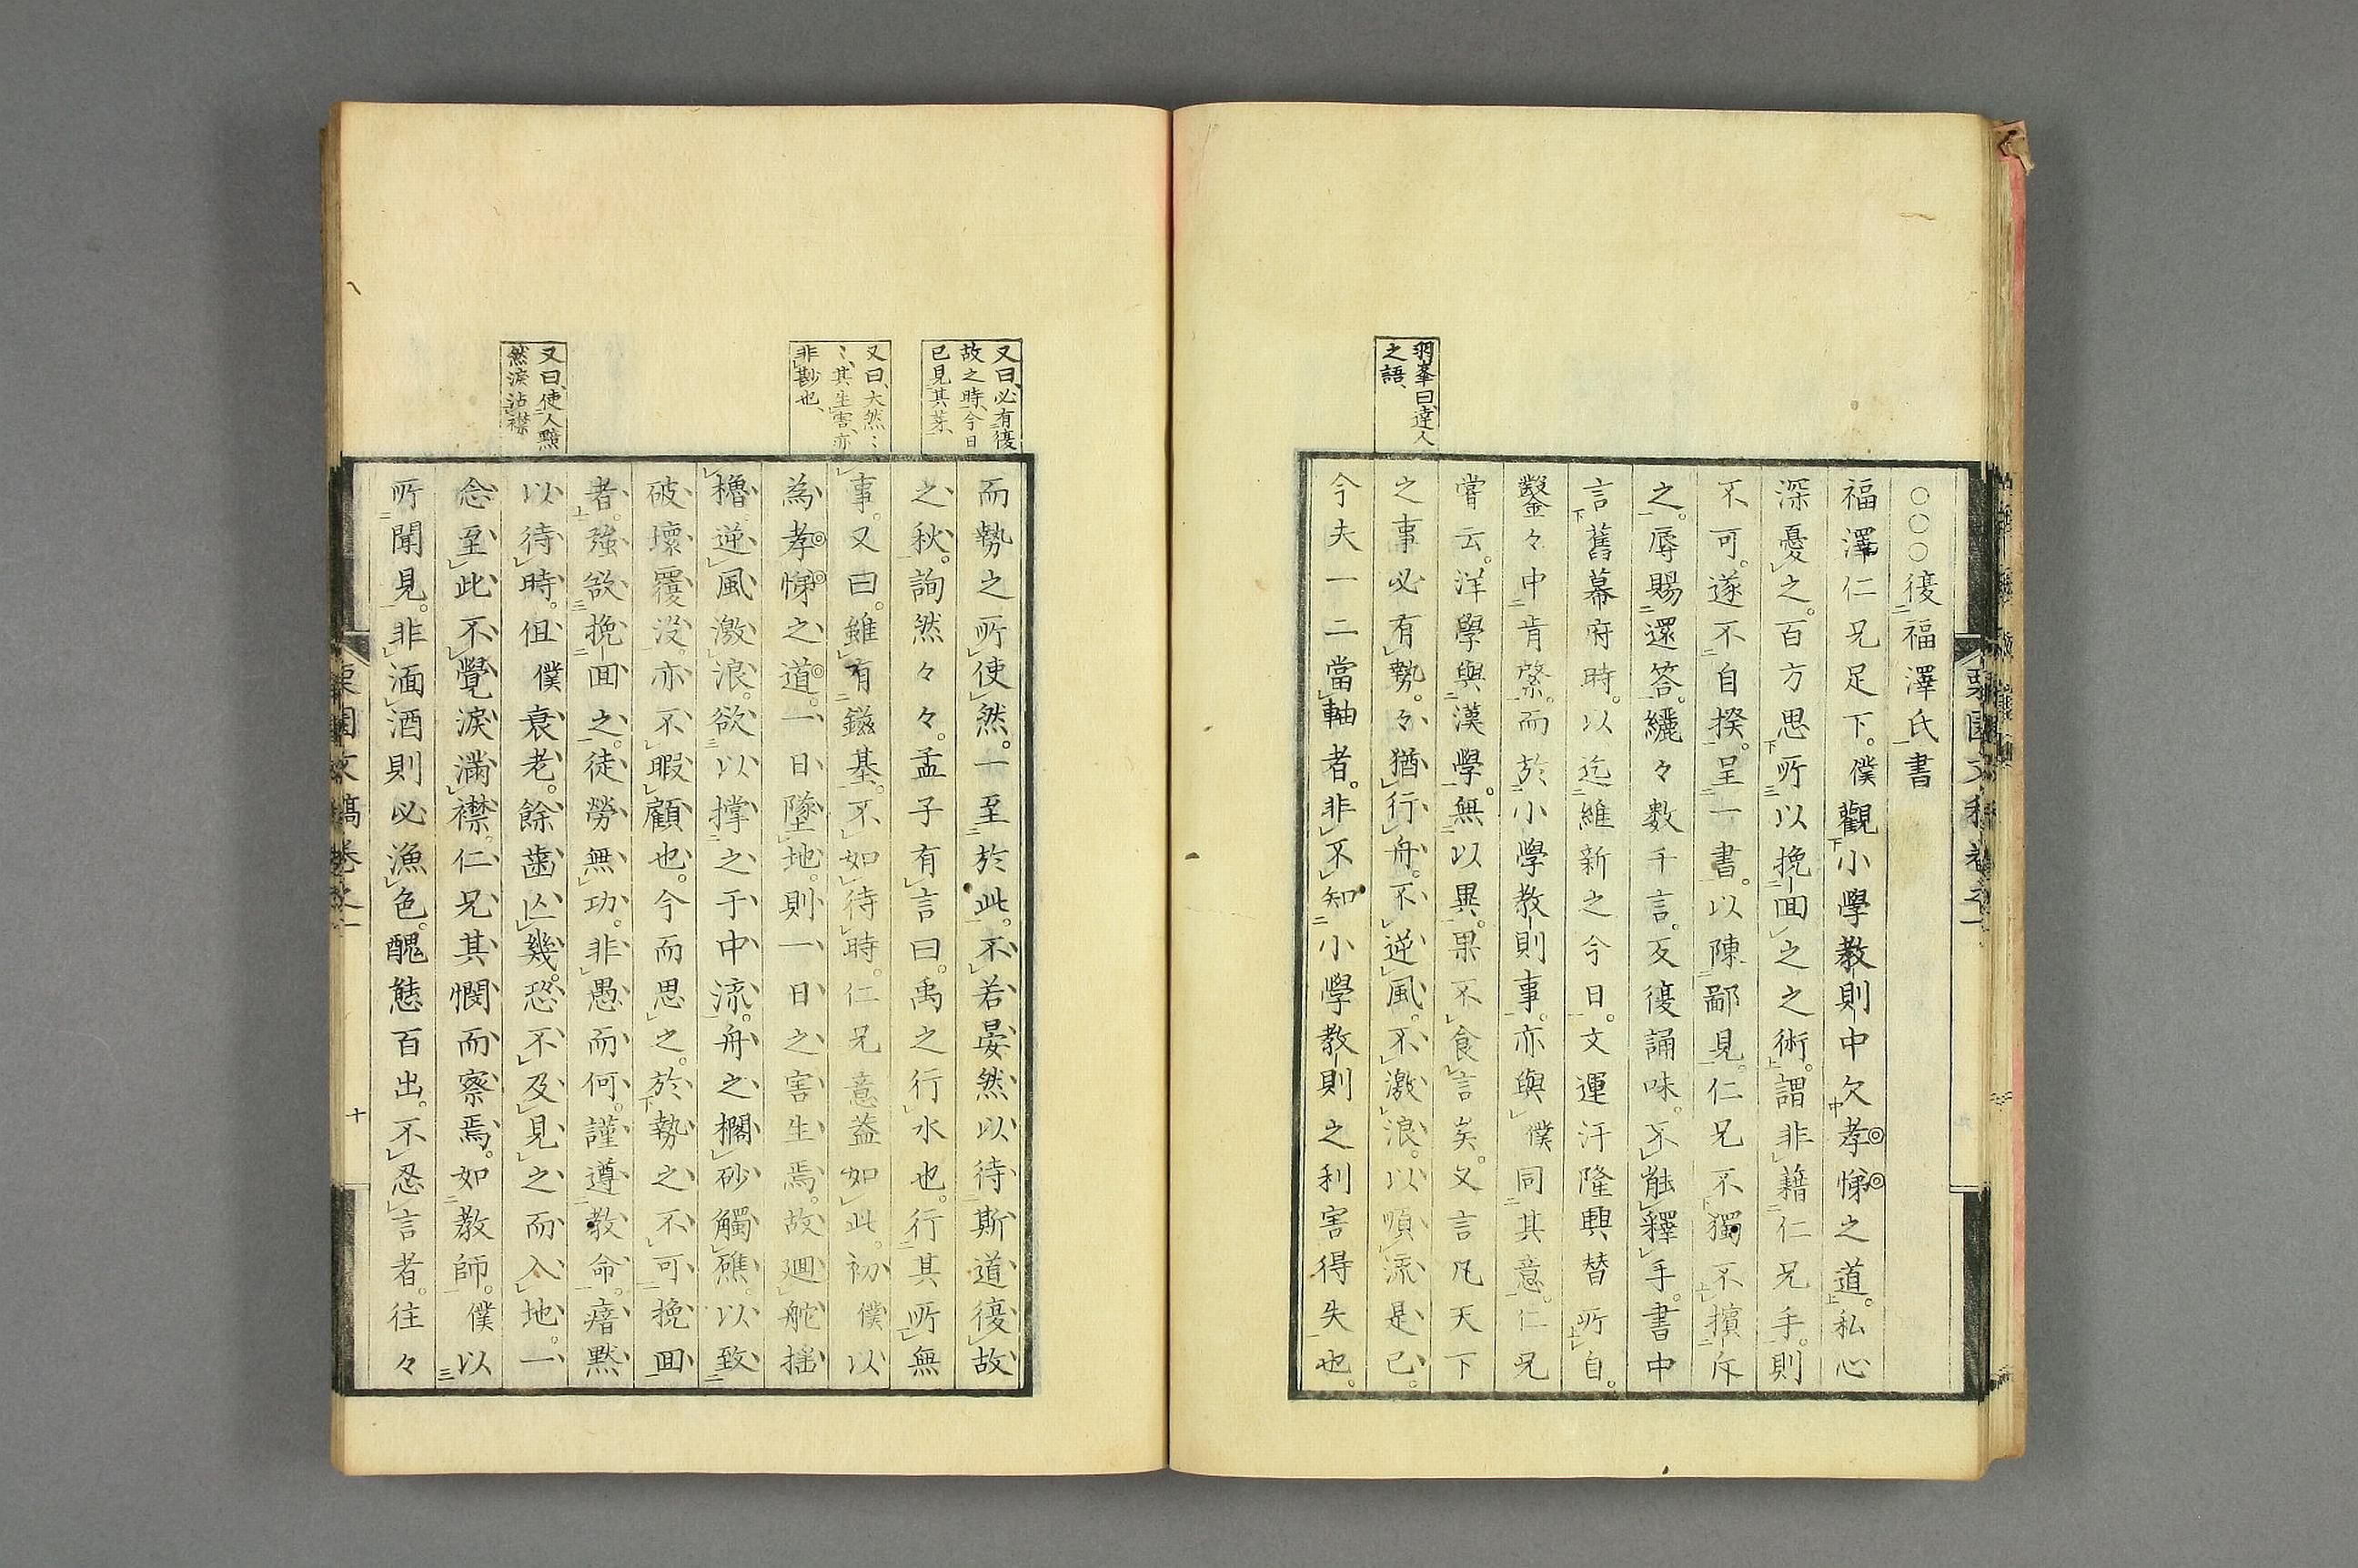 羽峯曰、達人
之語、
○○○復福澤氏書
福澤仁兄足下。僕觀小學教則中欠孝悌之道。私心
深憂之。百方思所以挽回之之術。謂非藉仁兄手。則
不可。遂不自揆。呈一書。以陳鄙見。仁兄不獨不擯斥
之。辱賜還答。纚々數千言。反復誦味。不能釋手。書中
言舊幕府時。以迄維新之今日。文運汙隆興替所自。
鑿々中肯綮。而於小學教則事。亦與僕同其意。仁兄
嘗云。洋學與漢學。無以異。果不食言矣。又言凡天下
之事必有勢。々猶行舟。不逆風。不激浪。以順流是已。
今夫一二當軸者。非不知小學教則之利害得失也。
又曰、必有復
故之時、今日
已見其芽、
又曰、大然〻
〻、其生害、亦
非尠也、
又曰、使人黯
然涙沾襟
而勢之所使然。一至於此。不若晏然以待斯道復故
之秋。詢然々々。孟子有言曰。禹之行水也。行其所無
事。又曰。雖有鎡基。不如待時。仁兄意蓋如此。初僕以
為孝悌之道。一日墜地。則一日之害生焉。故廻舵搖
櫓。逆風激浪。欲以撑之于中流。舟之擱砂觸礁。以致
破壞覆没。亦不暇顧也。今而思之。於勢之不可挽回
者。強欲挽回之。徒勞無功。非愚而何。謹遵教命。瘖默
以待時。但僕衰老。餘齒亡幾。恐不及見之而入地。一
念至此。不覺涙滿襟。仁兄其憫而察焉。如教師。僕以
所聞見。非湎酒則必漁色。醜態百出。不忍言者。往々
栗園文稿卷之一
十